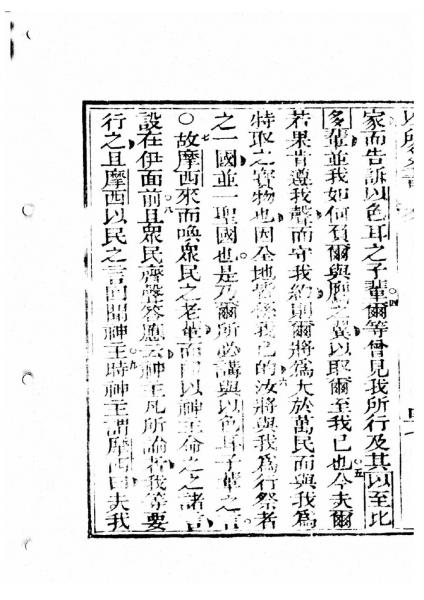 家而告訴以色耳之子輩四爾等曾見我所行及其以至比
多輩並我如何負爾與鷹之翼以取爾至我已也五今夫爾
若果肯遵我聲而守我約則爾將爲大於萬民而與我爲
特取之寶物也因全地皆係我己的六汝將與我爲行祭者
之一國並一聖國也是乃爾所必講與以色耳子輩之言
○七故摩西來而喚衆民之老輩而以神主命之之諸言
設在伊面前八且衆民齊聲答應云神主凡所諭者我等要
行之且摩西以民之言回聞神主時九神主謂摩西曰夫我